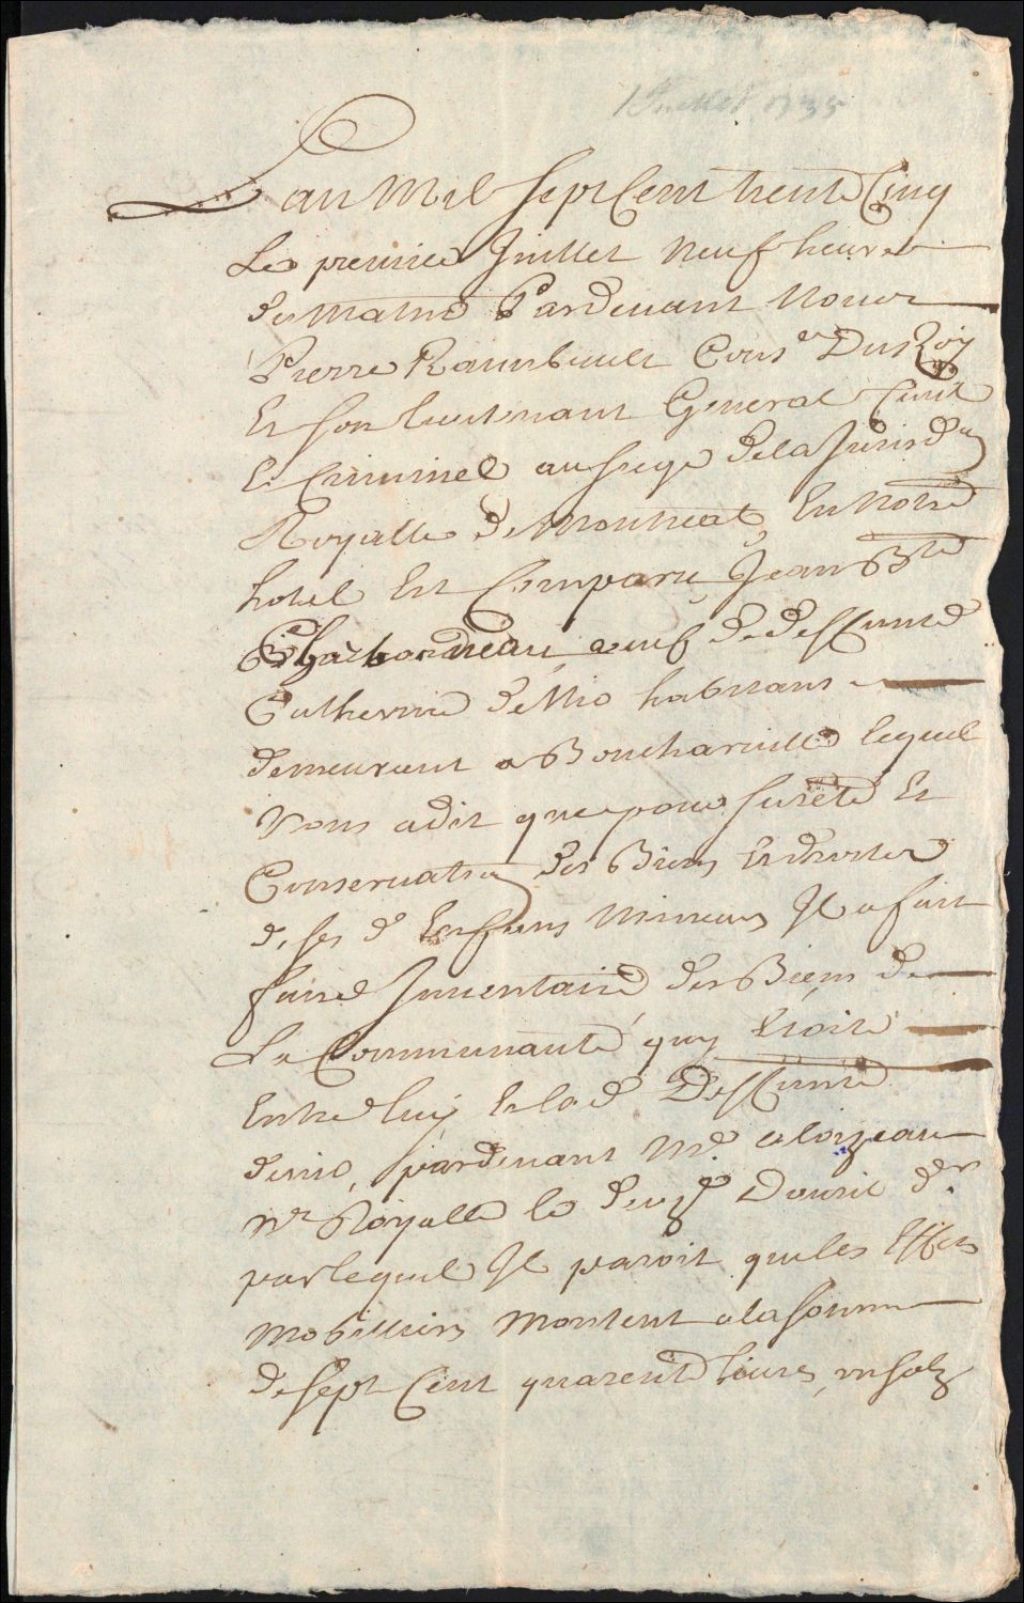 1 Juillet 1735
Lan Mil sept Cent trente Cinq
Le premier Juillet neuf heures
du matin Pardevant Nous
Pierre Raimbault Cons.er Du Roy
Et son lieutenant General Civil
Et Criminel au siege de la Jurisd.on
Royalle de Montreal, En Notre
hotel Est Comparu Jean Bte
Charbonneau veuf de deffunte
Catherine habitant
demeurant a Boucherville lequel
Nous a dit que pour sureté Et
Conservation des Biens Et droits
de ses d Enfans Mineurs Il a fait
faire Inventaire des Biens de
La Communauté quy Etoit
Entre luy Et la de Deffunte
pardevant Me. Loizeau
Nre Royalle le d'avril der
par lequel Il paroit que les Effets
Mobilliers Montent a la somme
de sept Cent quarente livres, un solz